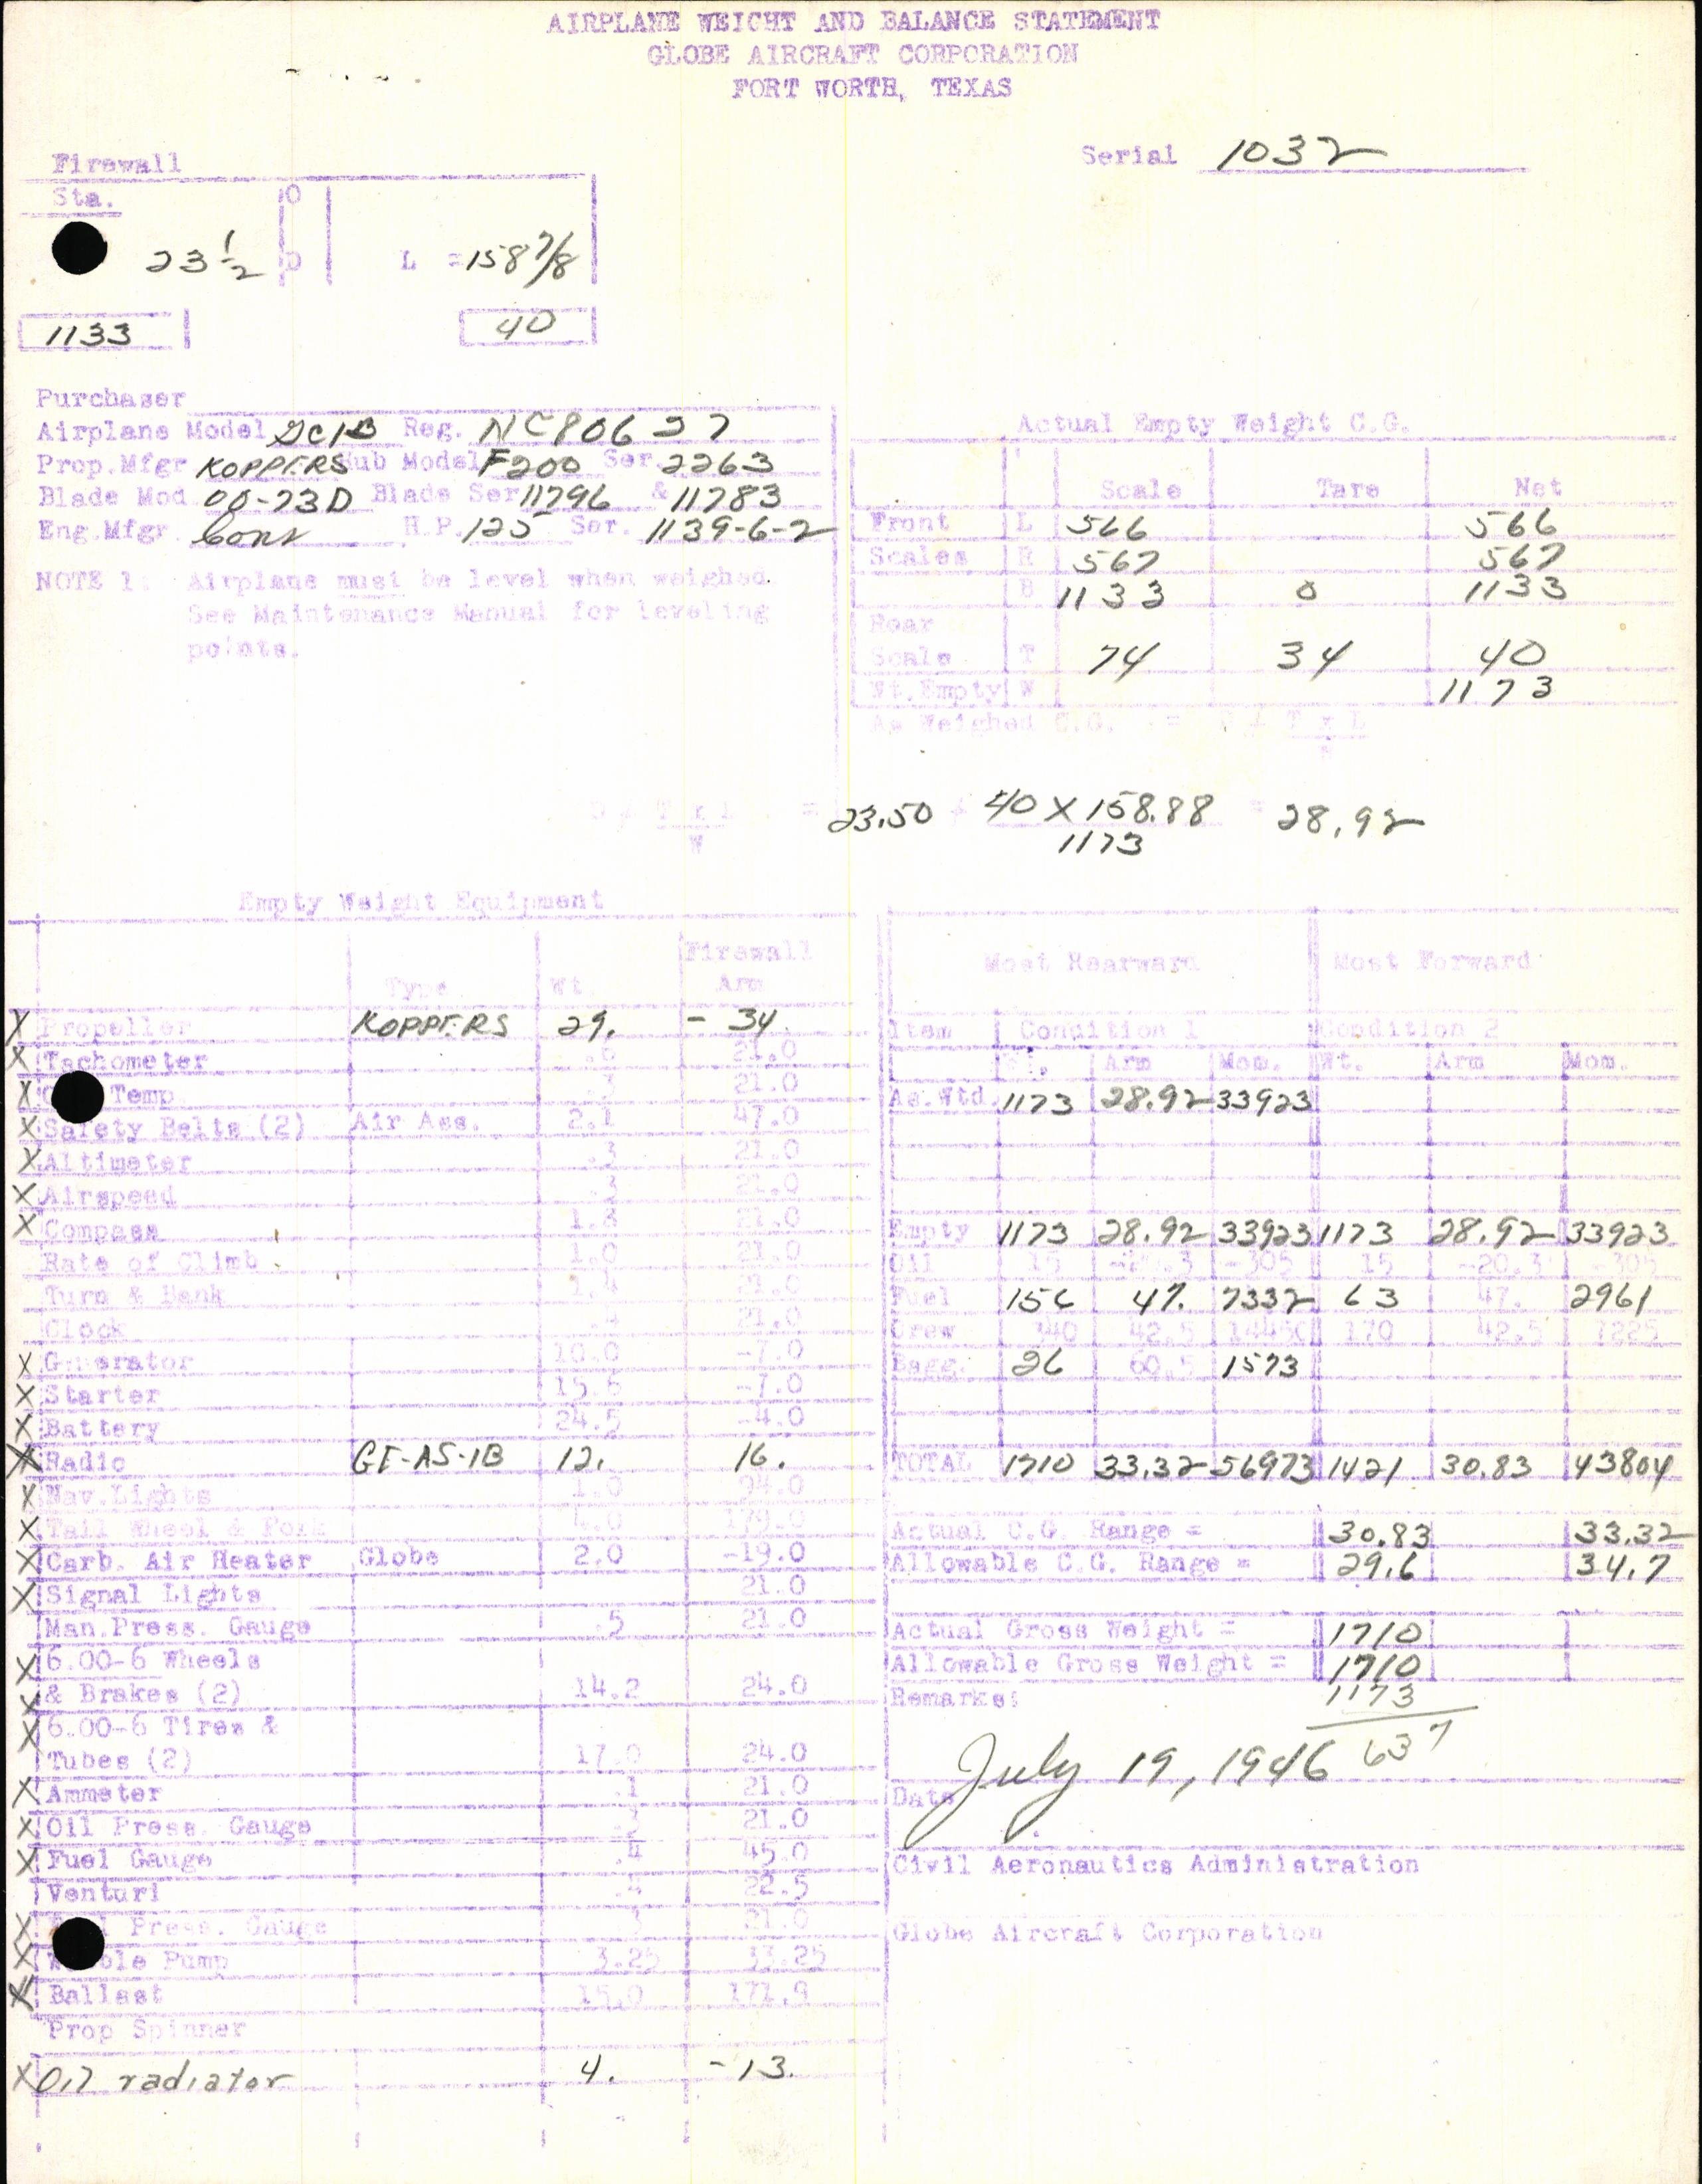 AIRPLANE WEIGHT AND BALANCE STATEMENT
GLOBE AIRCRAFT CORPORATION
FORT WORTH, TEXAS
Serial 1032
Firewall
Sta. O
23 1/2 L = 158 7/8
1133 40
Purchaser
Airplane Model GC1B Reg. NC80627
Prop.Mfgr KOPPERS Hub Model F200 Ser. 2263
Blade Mod 00-73D Blade Ser 11796 & 11783
Eng.Mfgr. Cont H.P. 125 Ser. 1139-6-2
NOTE 1: Airplane must be level when weighed
See Maintenance Manual for leveling
points.
Actual Empty Weight C.G.
Scale Tare Net
Front L 566 566
Scales R 567 567
B 1133 0 1133
Rear
Scale T 74 34 40
Wt.Empty W 1173
As Weighed C.G. = D ≠ T x L
W
D ≠ T x L = 23.50 ≠ 40 X 158.88 = 28.92
W 1173
Empty Weight Equipment
Type Wt. Firewall Arm
X Propeller KOPPERS 29. - 34.
X Tachometer 21.0
X Temp .3 21.0
X Safety Belts (2) Air Acs. 2.1 47.0
X Altimeter .3 21.0
X Airspeed .3 21.0
X Compass 1.3 21.0
Rate of Climb 1.0 21.0
Turn & Bank 1.4 21.0
Clock .4 21.0
X Generator 10.0 -7.0
X Starter 15.6 -7.0
X Battery 24.5 -4.0
X Radio GE-AS-1B 12. 16.
X Nav.Lights 1.0 94.0
X Tail Wheel & Fork 4.0 179.0
X Carb. Air Heater Globe 2.0 -19.0
X Signal Lights 21.0
Man.Press. Gauge .5 21.0
X 6.00-6 Wheels
X & Brakes (2) 14.2 24.0
X 6.00-6 Tires &
Tubes (2) 17.0 24.0
X Ammeter .1 21.0
X Oil Press. Gauge .3 21.0
X Fuel Gauge .4 45.0
Venturi .4 22.5
X Press. Gauge .3 21.0
X ble Pump 3.25 13.25
X Ballast 15.0 171.9
Prop Spinner
X Oil radiator 4. -13.
Most Rearward Most Forward
Item Condition 1 Condition 2
Wt. Arm Mom. Wt. Arm Mom.
As.Wtd. 1173 28.92 33923
Empty 1173 28.92 33923 1173 28.92 33923
Oil 15 -20.3 -305 15 -20.3 -305
Fuel 156 47. 7332 63 47. 2961
Crew 340 42.5 14450 170 42.5 7225
Bagg. 26 60.5 1573
TOTAL 1710 33.32 56973 1421 30.83 43804
Actual C.G. Range = 30.83 33.32
Allowable C.G. Range = 29.6 34.7
Actual Gross Weight = 1710
Allowable Gross Weight = 1710
Remarks: 1173
637
Date July 19, 1946
Civil Aeronautics Administration
Globe Aircraft Corporation